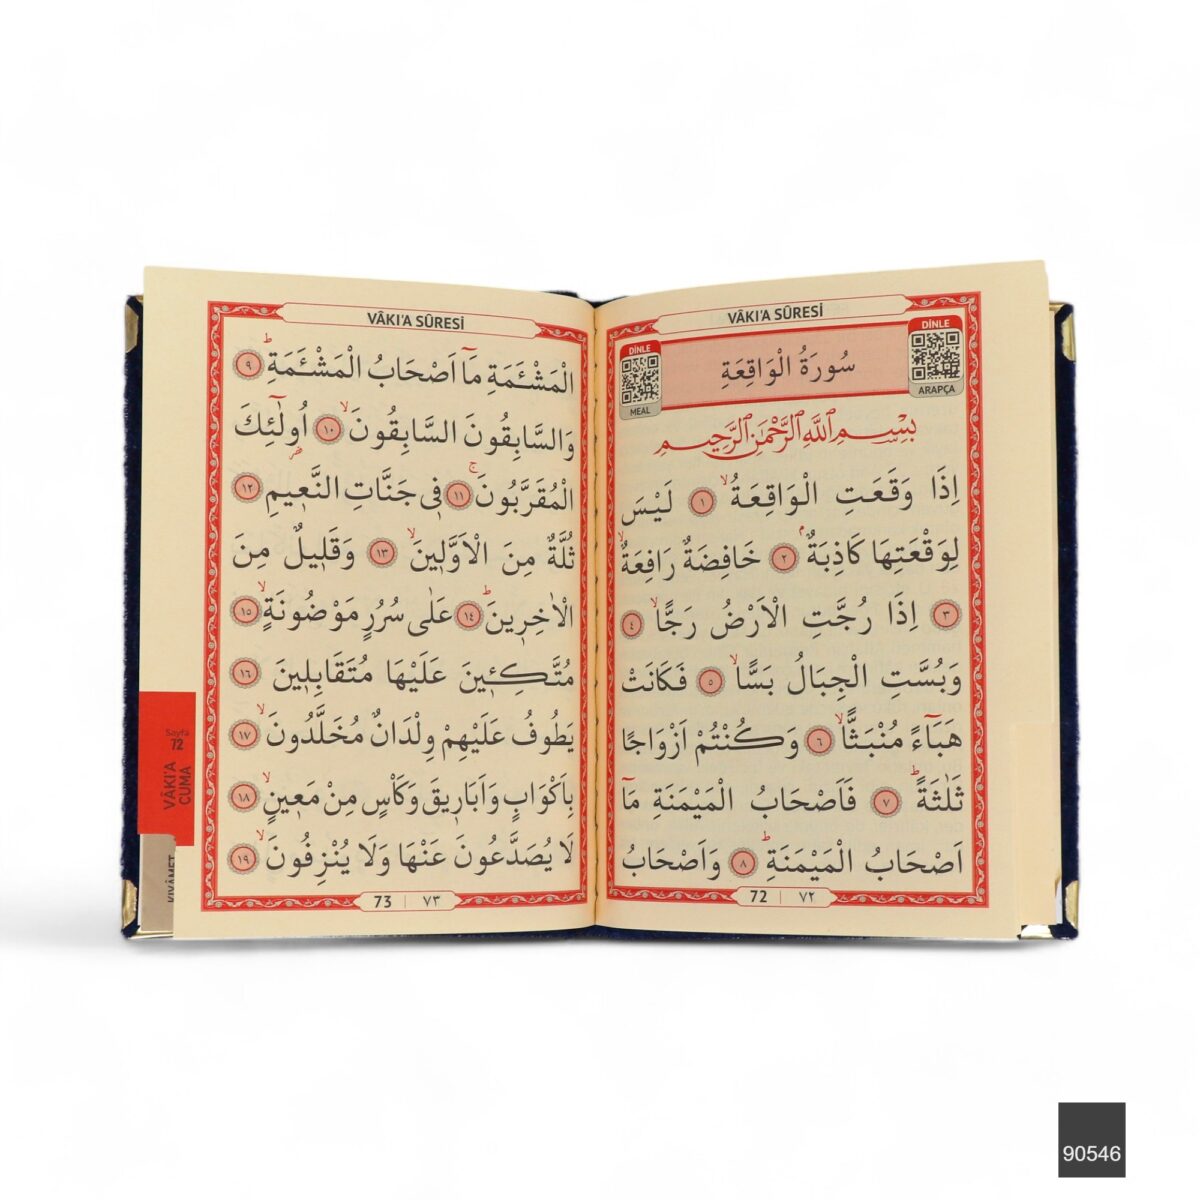 VÂKI'A SÛRESİ
DİNLE
ARAPÇA
سُورَةُ الْوَاقِعَةِ
DİNLE
MEAL
بِسْمِ اللّٰهِ الرَّحْمٰنِ الرَّحِيمِ
اِذَا وَقَعَتِ الْوَاقِعَةُۙ ١ لَيْسَ
لِوَقْعَتِهَا كَاذِبَةٌۢ ٢ خَافِضَةٌ رَافِعَةٌۙ
٣ اِذَا رُجَّتِ الْاَرْضُ رَجًّاۙ ٤
وَبُسَّتِ الْجِبَالُ بَسًّاۙ ٥ فَكَانَتْ
هَبَٓاءً مُنْبَثًّاۙ ٦ وَكُنْتُمْ اَزْوَاجًا
ثَلٰثَةًۜ ٧ فَاَصْحَابُ الْمَيْمَنَةِ مَٓا
اَصْحَابُ الْمَيْمَنَةِۜ ٨ وَاَصْحَابُ
72 | ٧٢
VÂKI'A SÛRESİ
الْمَشْـَٔمَةِ مَٓا اَصْحَابُ الْمَشْـَٔمَةِۜ ٩
وَالسَّابِقُونَ السَّابِقُونَۙ ١٠ اُولٰٓئِكَ
الْمُقَرَّبُونَۚ ١١ فٖى جَنَّاتِ النَّعٖيمِ ١٢
ثُلَّةٌ مِنَ الْاَوَّلٖينَۙ ١٣ وَقَلٖيلٌ مِنَ
الْاٰخِرٖينَۜ ١٤ عَلٰى سُرُرٍ مَوْضُونَةٍۙ ١٥
مُتَّكِـٖٔينَ عَلَيْهَا مُتَقَابِلٖينَ ١٦
يَطُوفُ عَلَيْهِمْ وِلْدَانٌ مُخَلَّدُونَۙ ١٧
بِاَكْوَابٍ وَاَبَارٖيقَ وَكَأْسٍ مِنْ مَعٖينٍۙ ١٨
لَا يُصَدَّعُونَ عَنْهَا وَلَا يُنْزِفُونَۙ ١٩
73 | ٧٣
Sayfa
72
VÂKI'A
CUMA
KIYÂMET
90546